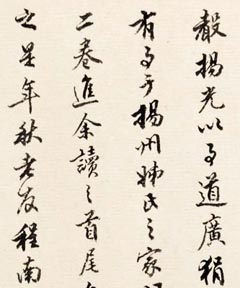 聲揚光以引道廣狷
有了于揚州姊氏之家
二卷進余讀之首尾
之是年秋老友程南